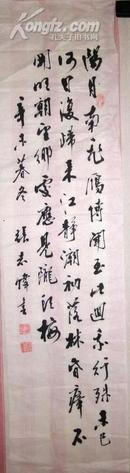 阳月南飞雁传闻至此回我行殊未已
何日复归来江静潮初落林昏瘴不
开明朝望乡处应见陇头梅
辛未暮冬 张志伟书